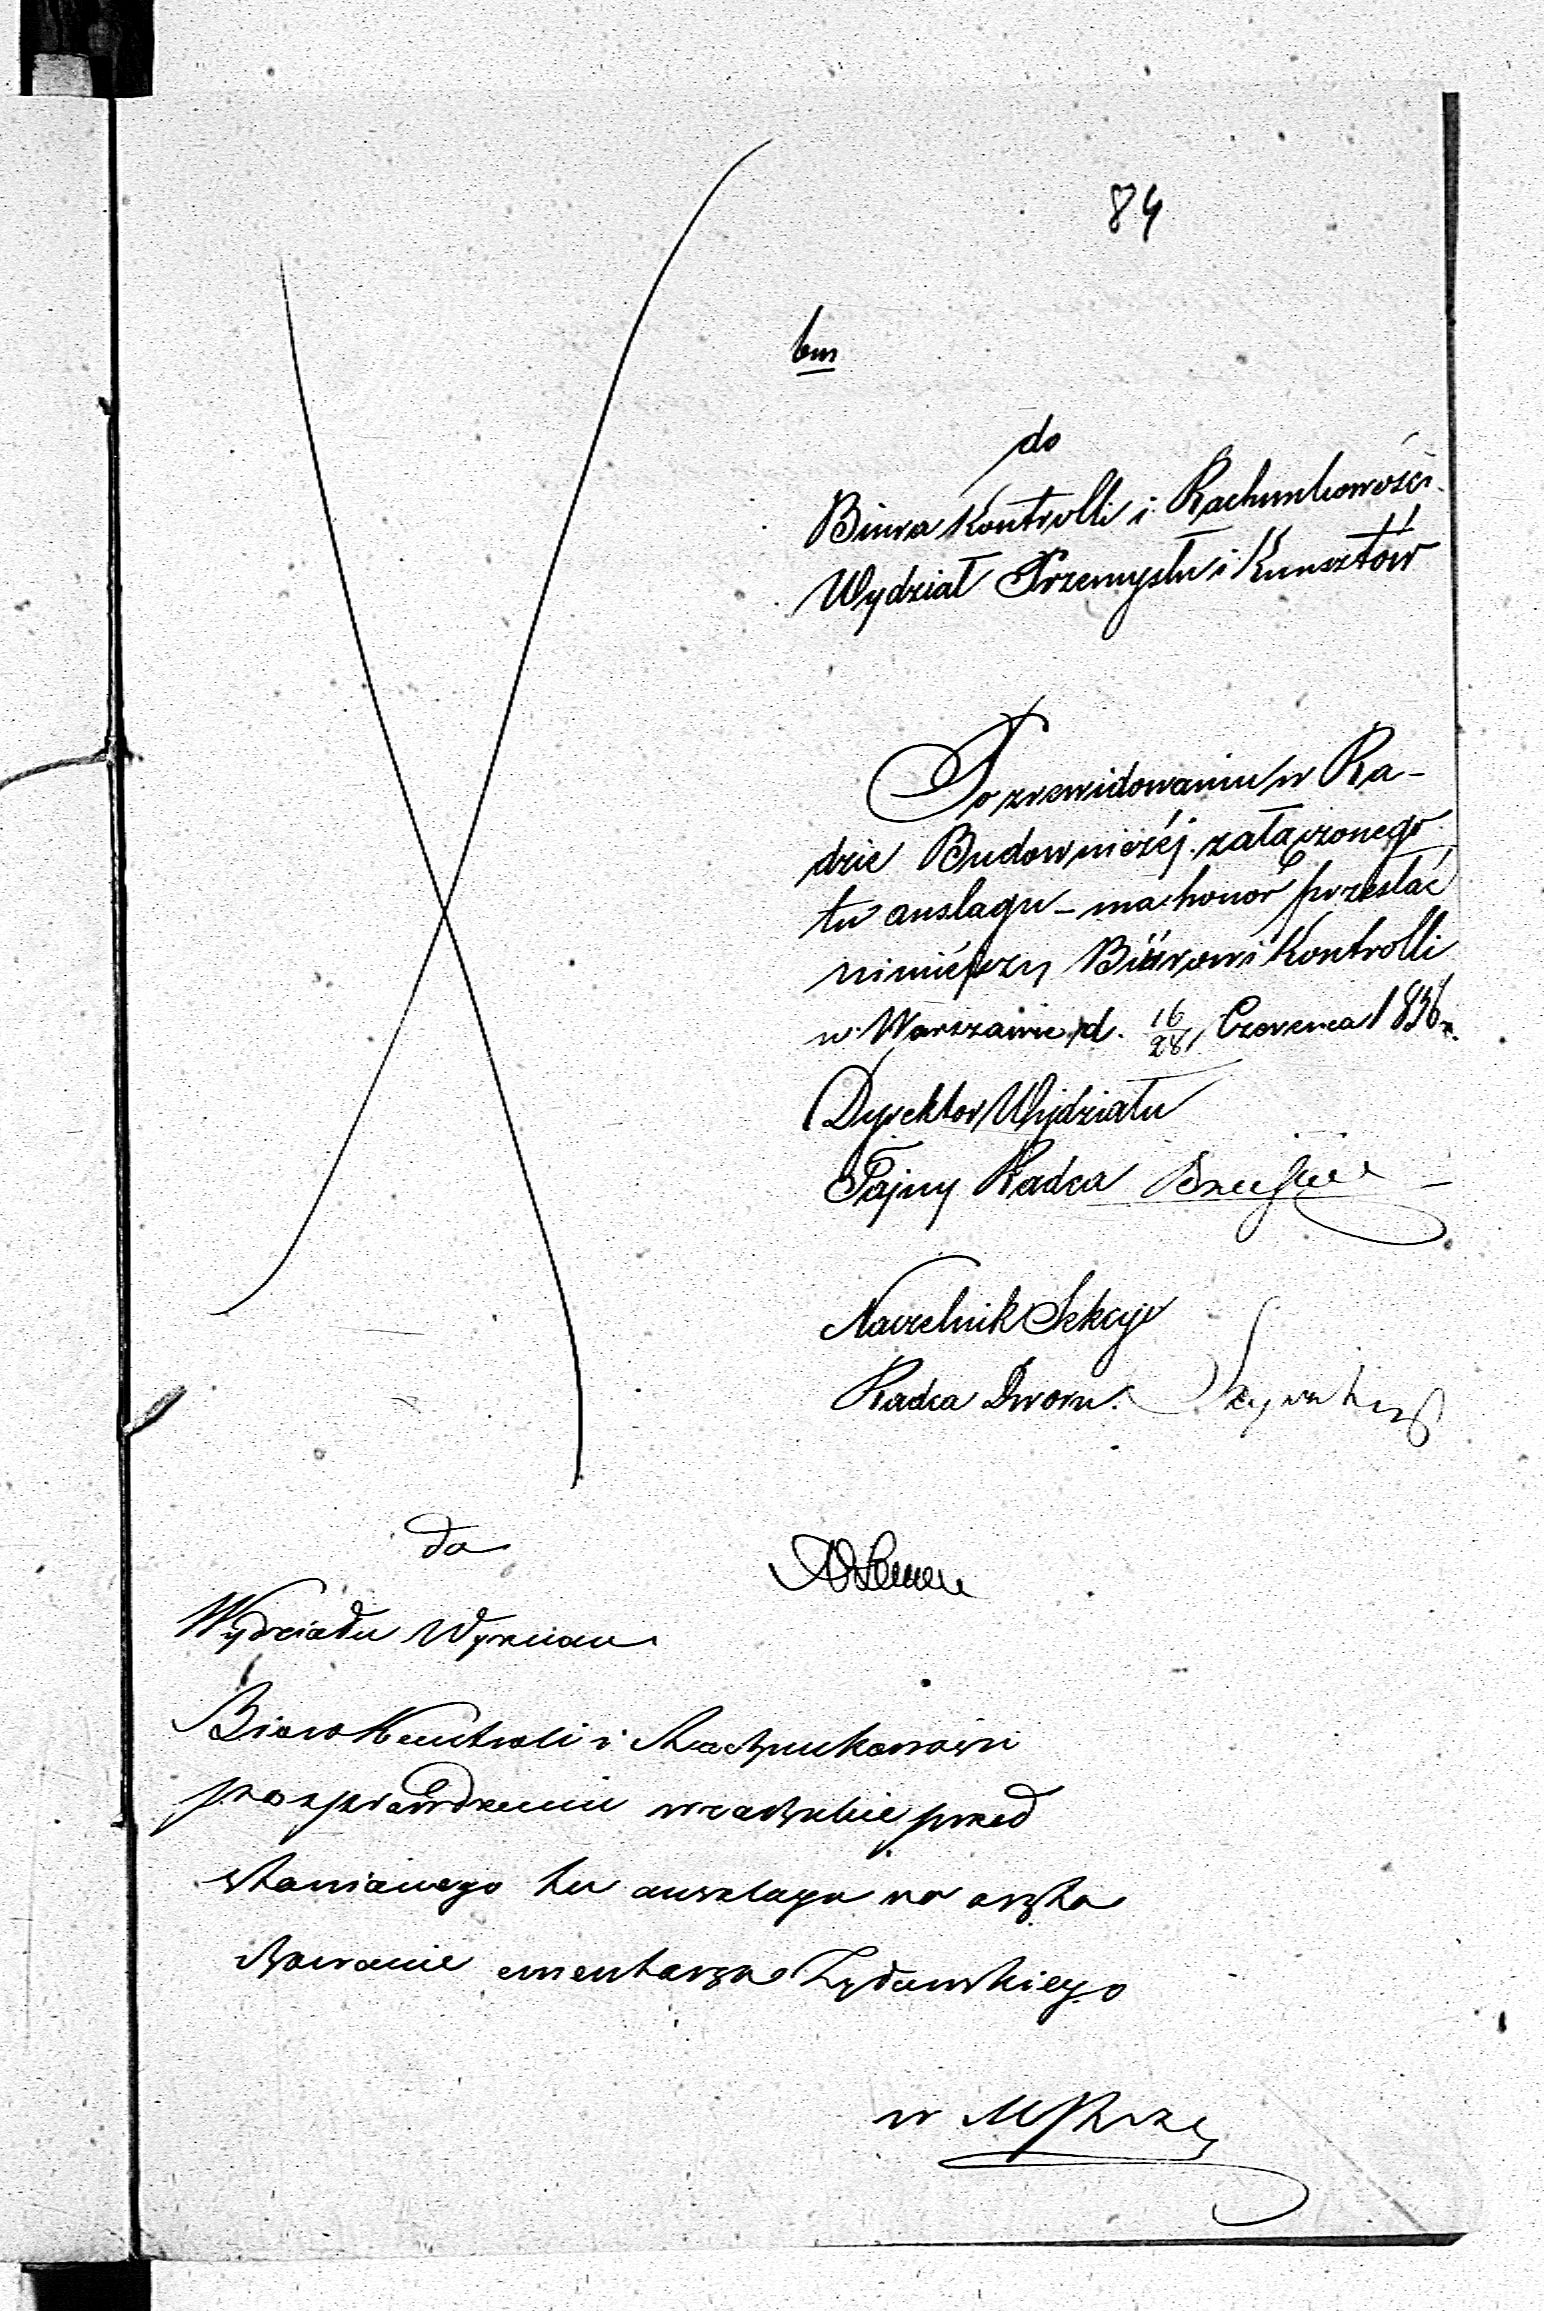 84
bm
do
Biura Kontrolli i Rachunkowości
Wydział Przemysłu i Kunsztów
Po zrewidowaniu w Ra-
dzie Budowniczéj załączonego
tu anslagu – ma honor przesłać
niniéjszy Biórowi Kontrolli
w Warszawie d. 16/28 Czerwca 1836 r.
Dyrektor Wydziału
Tajny Radca
Naczelnik Sekcyi
Radca Dworu
do
Wydziału Wyznan
Biuro Kontroli i Rachunkowości
po sprawdzeniu w rachubie przed
stawionego tu anszlagu na oszta
chowanie cmentarza Żydowskiego
w